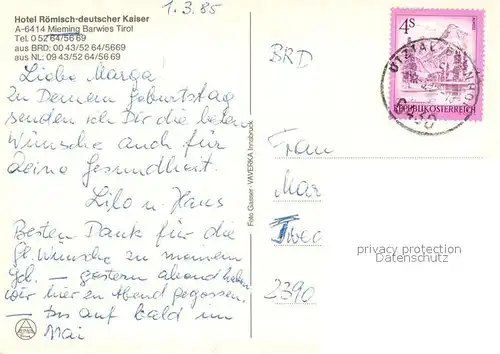 Hotel Römisch-deutscher Kaiser
A-6414 Mieming Barwies Tirol
Tel. 0 52 64/56 69
aus BRD: 00 43/52 64/5669
aus NL: 09 43/52 64/56 69
1.3.85
Liebe Marga!
Zu Deinem Geburtstag
senden ich Dir die besten
Wünsche auch für
Deine Gesundheit.
Lilo u. Hans
Besten Dank für die
gl. Wünsche zu meinem
Geb. — gestern abend haben
wir hier en Abend gegossen.
— bis auf bald im
Mai
Foto Gasser - VAVERKA Innsbruck
BRD
4S
REPUBLIK ÖSTERREICH
Frau
Mar
2390
privacy protection
DatenSchutz